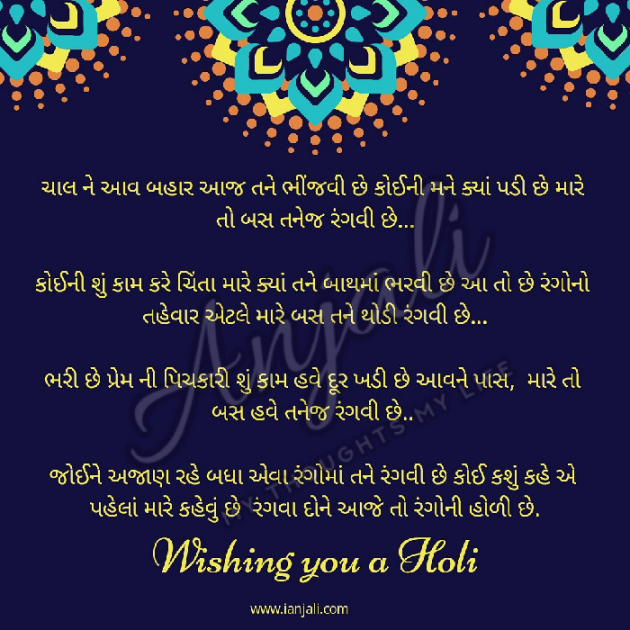 ચાલ ને આવ બહાર આજ તને ભીંજવી છે કોઈની મને ક્યાં પડી છે મારે
તો બસ તનેજ રંગવી છે...
કોઈની શું કામ કરે ચિંતા મારે ક્યાં તને બાથમાં ભરવી છે આ તો છે રંગોનો
તહેવાર એટલે મારે બસ તને થોડી રંગવી છે...
ભરી છે પ્રેમ ની પિચકારી શું કામ હવે દૂર ખડી છે આવને પાસ, મારે તો
બસ હવે તનેજ રંગવી છે..
જોઈને અજાણ રહે બધા એવા રંગોમાં તને રંગવી છે કોઈ કશું કહે એ
પહેલાં મારે કહેવું છે 'રંગવા દોને આજે તો રંગોની હોળી છે.
Wishing you a Holi
www.ianjali.com
Anjali
MY THOUGHTS MY LIFE